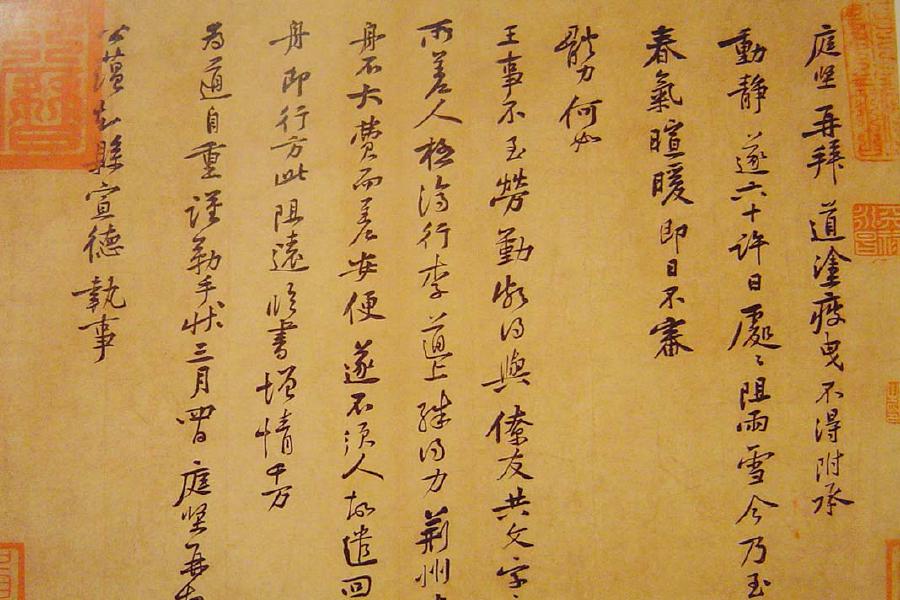 庭坚再拜 道塗疲曳不得附承
動靜遂六十許日處〻阻雨雪今乃至
春氣暄暖即日不審
體力何如
王事不至勞勤頗得與僚友共文字
所差人極濟行李道上殊得力荆州
舟不大費而差安便遂不須人故遣回
舟即行方此阻遠臨書增情千万
為道自重謹勒手狀三月四日庭坚再
公藴知縣宣德執事